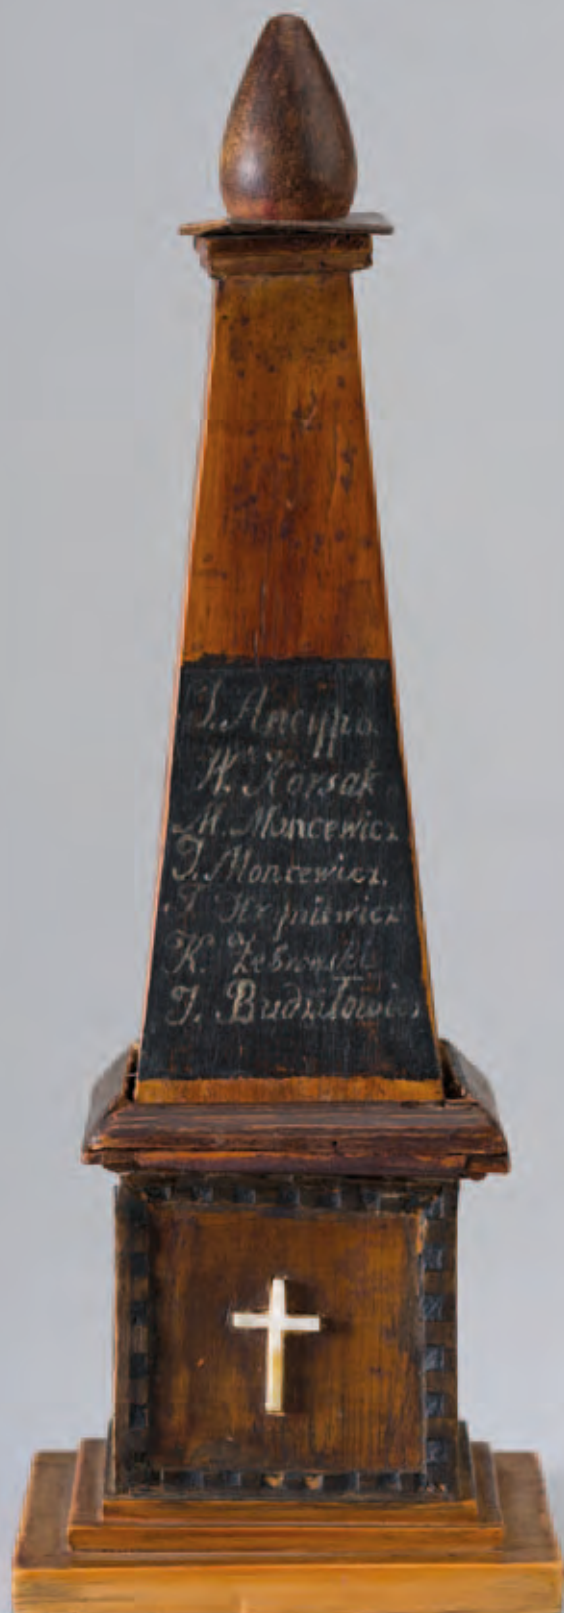 J. Ancyppo
W. Korsak
M. Moncewicz
J. Moncewicz.
J. Hryniewicz
K. Żebrowski
J. Budziłowicz